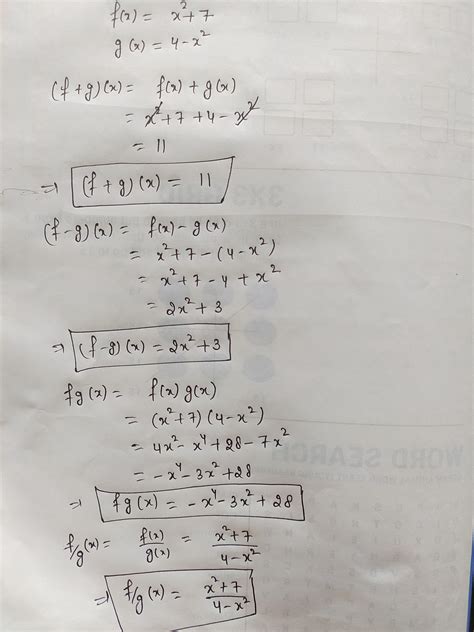 f(x) = x²+7
g(x) = 4-x²
(f+g)(x) = f(x)+g(x)
= x²+7+4-x²
= 11
⇒ (f+g)(x) = 11
(f-g)(x) = f(x)-g(x)
= x²+7-(4-x²)
= x²+7-4+x²
= 2x²+3
⇒ (f-g)(x) = 2x²+3
fg(x) = f(x) g(x)
= (x²+7)(4-x²)
= 4x²-x⁴+28-7x²
= -x⁴-3x²+28
⇒ fg(x) = -x⁴-3x²+28
f/g(x) = f(x)/g(x) = x²+7/4-x²
⇒ f/g(x) = x²+7/4-x²
3X3 GRID
WORD SEARCH